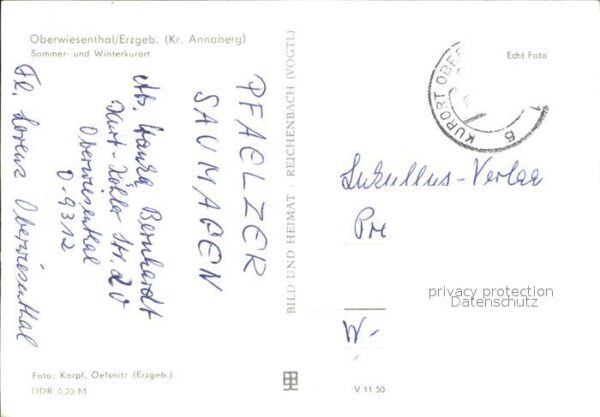 Oberwiesenthal/Erzgeb. (Kr. Annaberg)
Sommer- und Winterkurort
PFAELZER
SAUMAGEN
Abs. Hanka Bernhardt
Kurt-Köhler Str. 20
Oberwiesenthal
O-9312
Fr. Lorenz Oberwiesenthal
Foto: Karpf, Oelsnitz (Erzgeb.)
DDR 0,25 M
BILD UND HEIMAT · REICHENBACH (VOGTL)
Echt Foto
KURORT OBER
Lukullus-Verlag
Pre
W-
privacy protection
Datenschutz
V 11 50